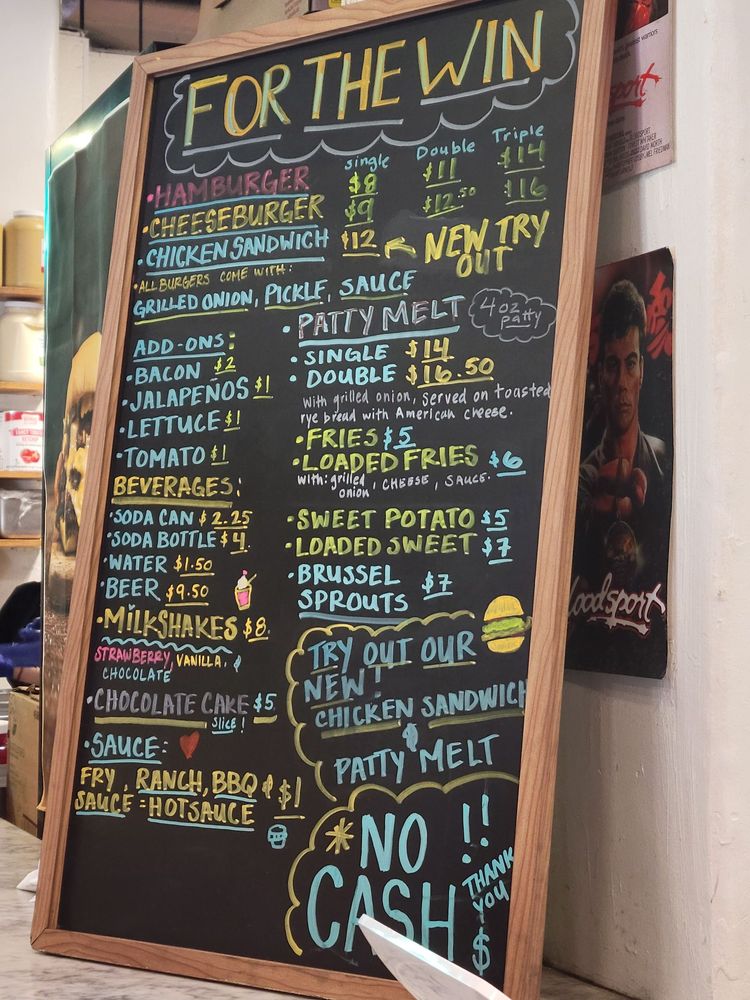 FOR THE WIN
single Double Triple
• HAMBURGER $8 $11 $14
• CHEESEBURGER $9 $12.50 $16
• CHICKEN SANDWICH $12 NEW TRY OUT
• ALL BURGERS COME WITH:
GRILLED ONION, PICKLE, SAUCE
ADD-ONS:
• BACON $2
• JALAPEÑOS $1
• LETTUCE $1
• TOMATO $1
BEVERAGES:
• SODA CAN $2.25
• SODA BOTTLE $4
• WATER $1.50
• BEER $9.50
• MILKSHAKES $8
STRAWBERRY, VANILLA, &
CHOCOLATE
• CHOCOLATE CAKE $5
SLICE!
• SAUCE:
FRY, RANCH, BBQ & $1
SAUCE = HOTSAUCE
• PATTY MELT 4oz patty
• SINGLE $14
• DOUBLE $16.50
with grilled onion, served on toasted
rye bread with American cheese.
• FRIES $5
• LOADED FRIES $6
with: grilled onion, CHEESE, SAUCE.
• SWEET POTATO $5
• LOADED SWEET $7
• BRUSSEL
SPROUTS $7
TRY OUT OUR
NEW!
CHICKEN SANDWICH
&
PATTY MELT
* NO
CASH!!
THANK
YOU
$
oodsport